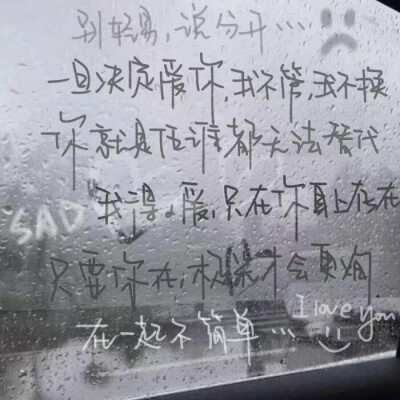 别轻易，说分开…
一旦决定爱你，我不管，我不换
你就是任谁都无法替代
SAD
我得爱，只在你身上存在
只要你在，枫叶才会更绚
在一起不简单…
I love you